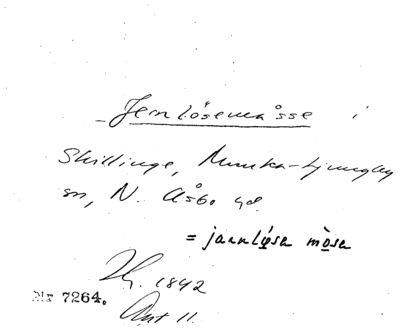 Jernlösemåsse i
Skillinge, Munka-Ljungby
sn, N. Åsbo hd.
= jaanløsa mosa
Hg. 1842
Nr 7264.
Ant 11.